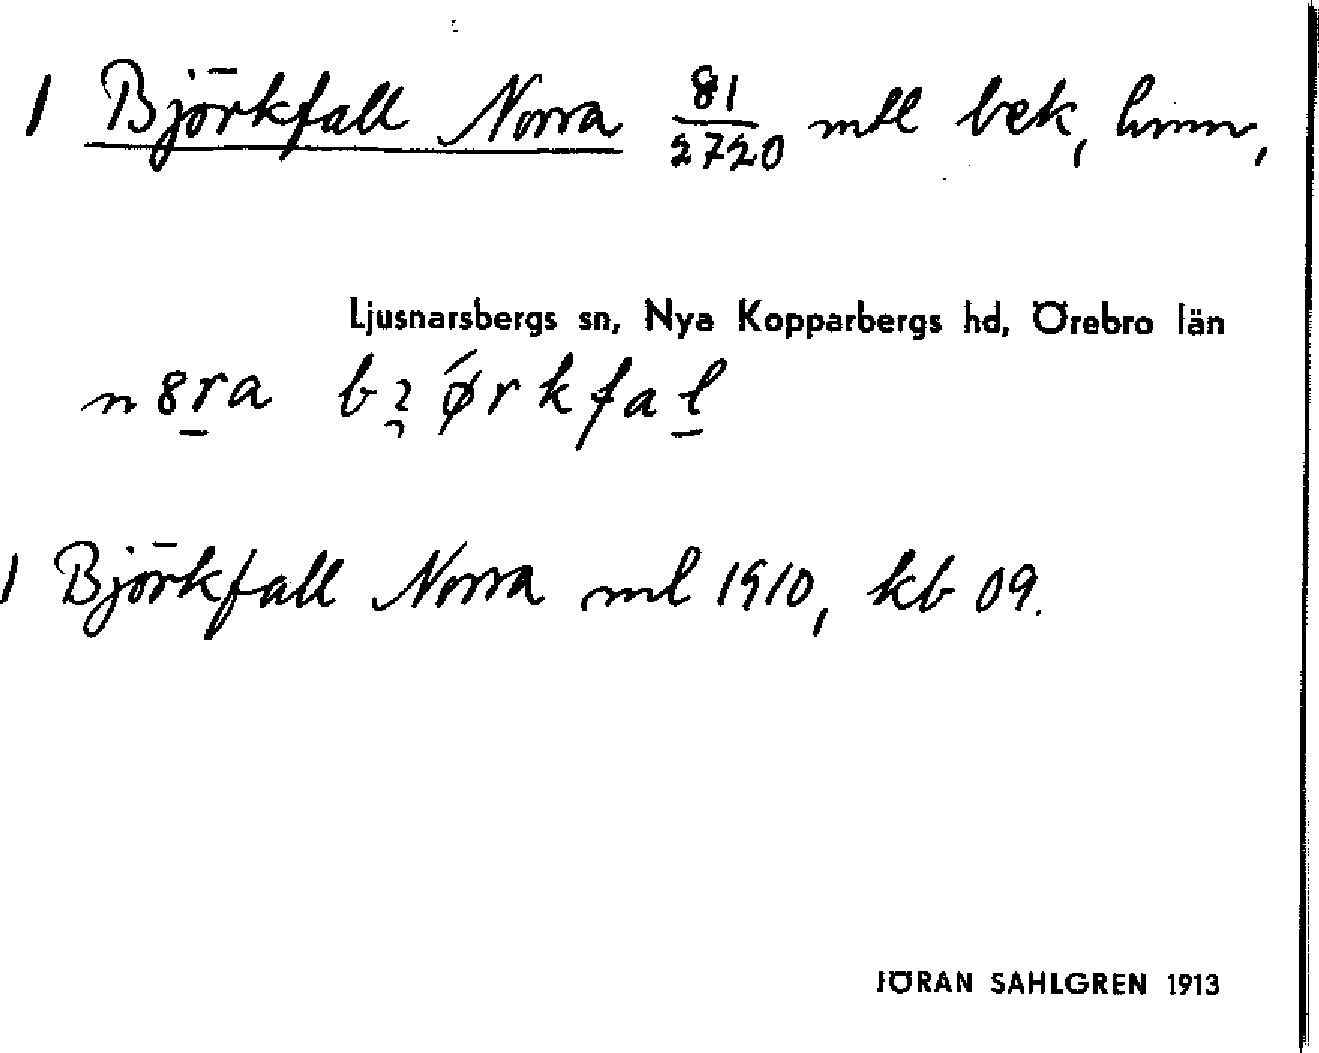 1 Björkfall Norra 81/2720 mtl bek, hmn,
Ljusnarsbergs sn, Nya Kopparbergs hd, Örebro län
n8ra bɂørkfal
1 Björkfall Norra ml 1910, kb 09.
JÖRAN SAHLGREN 1913